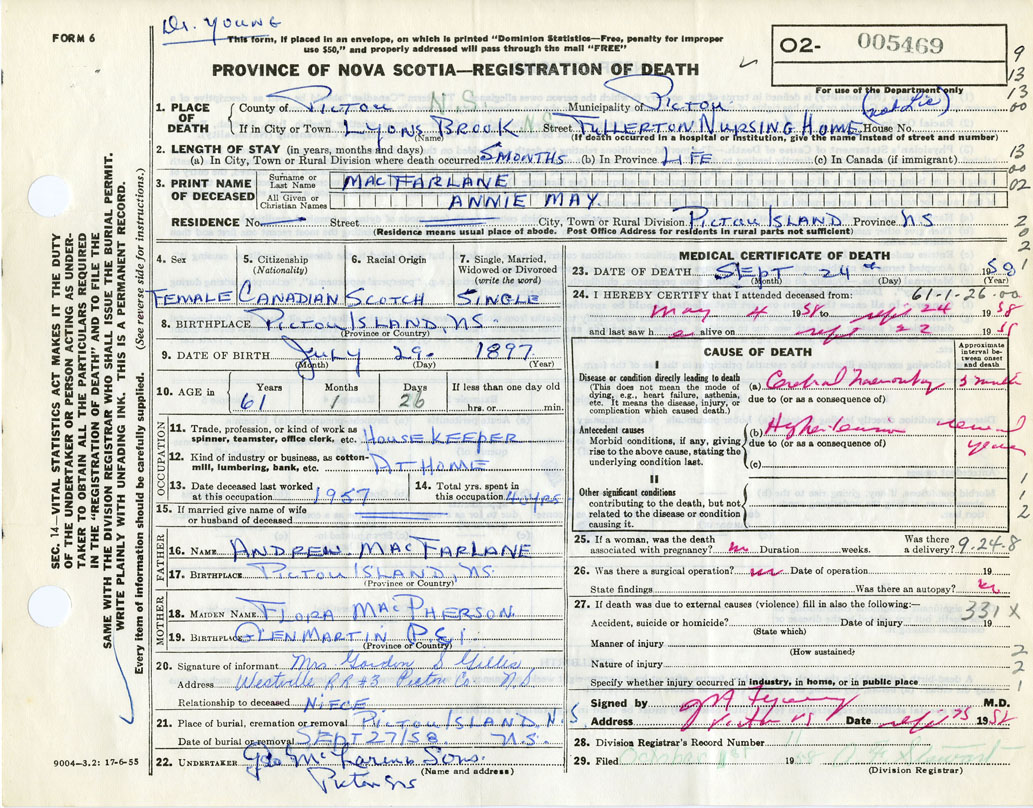 Dr. Young
FORM 6
This form, if placed in an envelope, on which is printed "Dominion Statistics—Free, penalty for improper
use $50," and properly addressed will pass through the mail "FREE"
O2- 005469
PROVINCE OF NOVA SCOTIA—REGISTRATION OF DEATH
For use of the Department only
9
13
13
00
13
00
02
2
0
2
1
1. PLACE OF DEATH
County of Pictou N.S. Municipality of Pictou
If in City or Town Lyons Brook Street Fullerton Nursing Home House No.
(Name) (If death occurred in a hospital or institution, give the name instead of street and number)
2. LENGTH OF STAY (in years, months and days)
(a) In City, Town or Rural Division where death occurred 5 months (b) In Province Life (c) In Canada (if immigrant)
3. PRINT NAME OF DECEASED
Surname or Last Name MacFarlane
All Given or Christian Names Annie May
RESIDENCE No. Street City, Town or Rural Division Pictou Island Province NS
(Residence means usual place of abode. Post Office Address for residents in rural parts not sufficient)
4. Sex 5. Citizenship (Nationality) 6. Racial Origin 7. Single, Married, Widowed or Divorced (write the word)
Female Canadian Scotch Single
8. BIRTHPLACE Pictou Island, NS.
(Province or Country)
9. DATE OF BIRTH July 29. 1897
(Month) (Day) (Year)
10. AGE in Years Months Days If less than one day old
61 1 26 hrs. or min.
OCCUPATION
11. Trade, profession, or kind of work as spinner, teamster, office clerk, etc. Housekeeper
12. Kind of industry or business, as cotton-mill, lumbering, bank, etc. At Home
13. Date deceased last worked at this occupation 1957
14. Total yrs. spent in this occupation 40 yrs.
15. If married give name of wife or husband of deceased
FATHER
16. NAME Andrew MacFarlane
17. BIRTHPLACE Pictou Island, NS.
(Province or Country)
MOTHER
18. MAIDEN NAME Flora MacPherson
19. BIRTHPLACE Glen Martin P.E.I.
(Province or Country)
20. Signature of informant Mrs Gordon S Gillis
Address Westville RR #3 Pictou Co. NS
Relationship to deceased Niece
21. Place of burial, cremation or removal Pictou Island N.S
Date of burial or removal Sept 27/58. N.S.
22. UNDERTAKER Geo McLaren & Sons.
(Name and address)
Pictou NS
9004—3.2: 17-6-55
MEDICAL CERTIFICATE OF DEATH
23. DATE OF DEATH Sept 24th 1958
(Month) (Day) (Year)
24. I HEREBY CERTIFY that I attended deceased from: 61-1-26-00
May 4 1958 to Sept 24 1958
and last saw her alive on Sept 22 1958
CAUSE OF DEATH
Approximate interval between onset and death
I
Disease or condition directly leading to death
(This does not mean the mode of dying, e.g., heart failure, asthenia, etc. It means the disease, injury, or complication which caused death.)
(a) Cerebral Haemorrhage 5 months
due to (or as a consequence of)
Antecedent causes
Morbid conditions, if any, giving rise to the above cause, stating the underlying condition last.
(b) Hypertension several years
due to (or as a consequence of)
(c)
II
Other significant conditions
contributing to the death, but not related to the disease or condition causing it.
1
1
2
25. If a woman, was the death associated with pregnancy? no Duration weeks. Was there a delivery? 9.24.8
26. Was there a surgical operation? no Date of operation 19
State findings Was there an autopsy? no
27. If death was due to external causes (violence) fill in also the following:—
331 X
Accident, suicide or homicide? Date of injury 19
(State which)
Manner of injury
(How sustained)
Nature of injury
Specify whether injury occurred in industry, in home, or in public place
2
2
1
Signed by M.D.
Address Pictou NS Date Sept 25 1958
28. Division Registrar's Record Number 11
29. Filed October 1st 1958
(Division Registrar)
SEC. 14—VITAL STATISTICS ACT MAKES IT THE DUTY
OF THE UNDERTAKER OR PERSON ACTING AS UNDER-
TAKER TO OBTAIN ALL THE PARTICULARS REQUIRED
IN THE "REGISTRATION OF DEATH" AND TO FILE THE
SAME WITH THE DIVISION REGISTRAR WHO SHALL ISSUE THE BURIAL PERMIT.
WRITE PLAINLY WITH UNFADING INK. THIS IS A PERMANENT RECORD.
Every item of information should be carefully supplied. (See reverse side for instructions.)